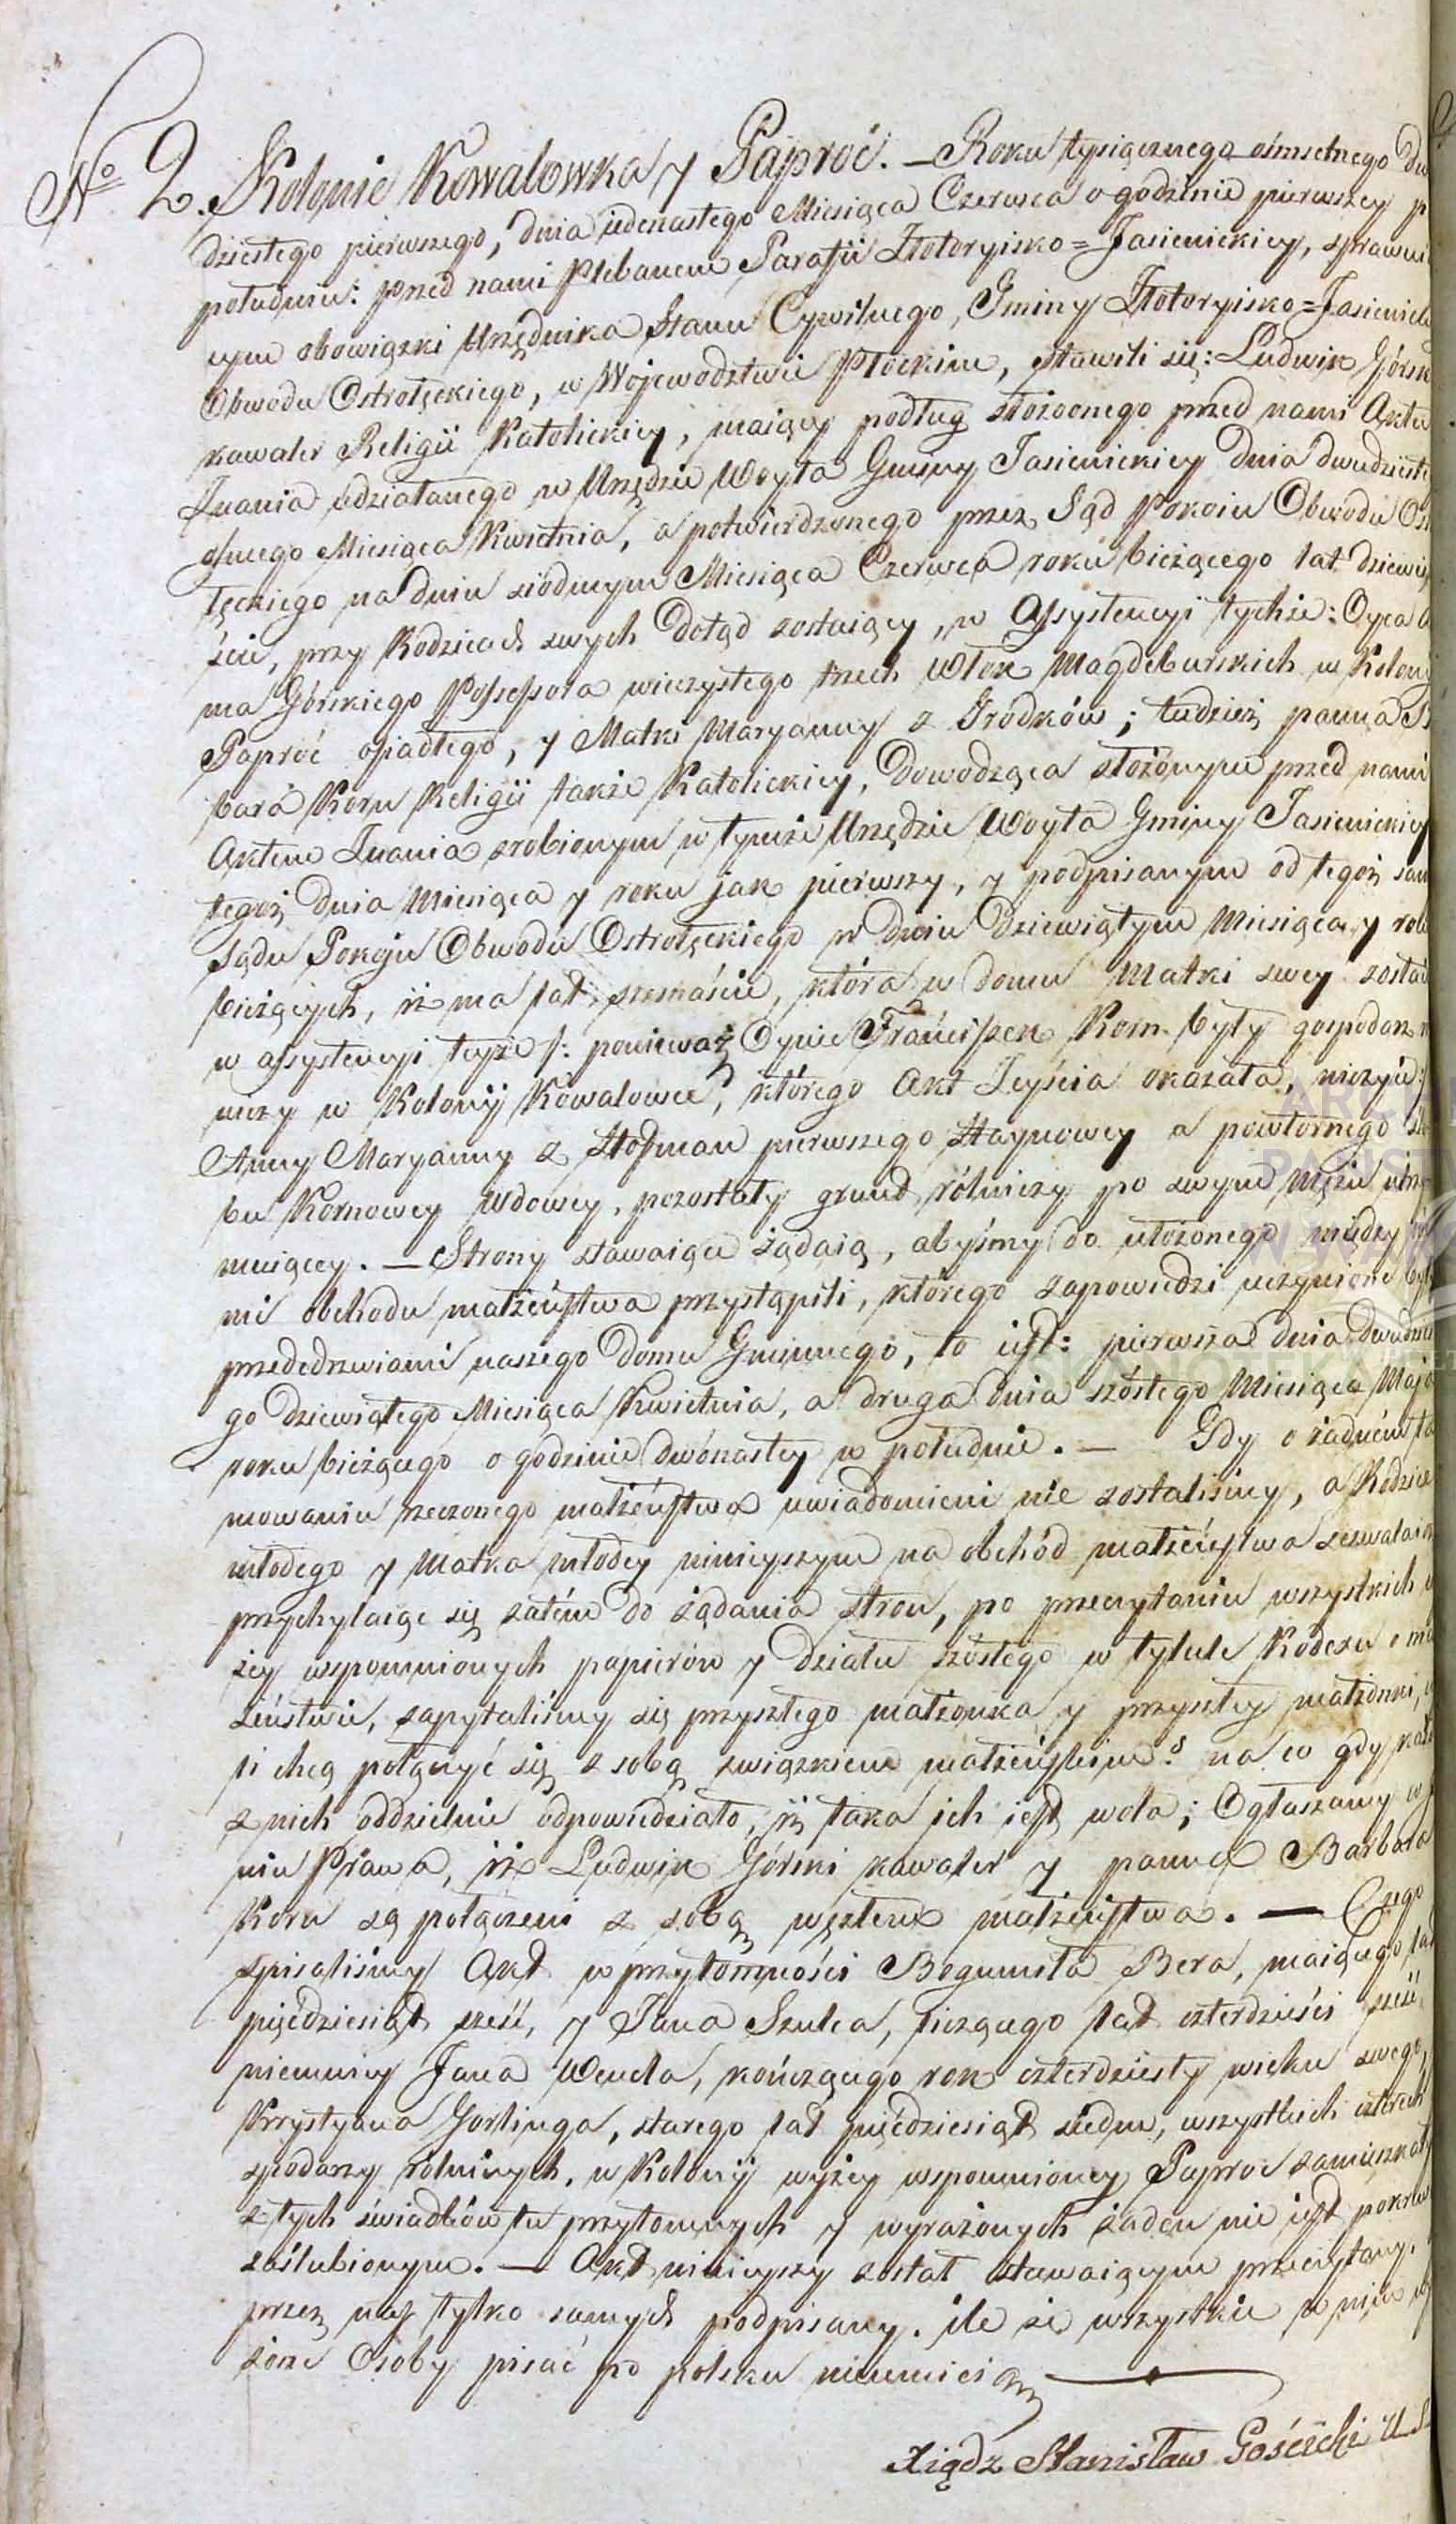 No 2. Kolonie Kowalowka y Paproć. — Roku tysiącznego ośmsetnego dw
dziestego pierwszego, dnia iedenastego Miesiąca Czerwca o godzinie pierwszey p
południu: przed nami Plebanem Parafii Złotoryisko=Jasienickiey, sprawui
cym obowiązki Urzędnika Stanu Cywilnego, Gminy Złotoryisko=Jasienick
Obwodu Ostrołęckiego, w Wojewodztwie Płockim, stawili się: Ludwik Górsk
kawaler Religii Katolickiey, maiący podług złożonego przed nami Aktu
Znania zdziałanego w Urzędzie Woyta Gminy Jasienickiey dnia dwudzieste
osmego Miesiąca Kwietnia, a potwierdzonego przez Sąd Pokoiu Obwodu Ost
łęckiego na dniu siódmym Miesiąca Czerwca roku bieżącego lat dziewię
ście, przy Rodzicach swych dotąd zostaiący, w Assystencyi tychże: Oyca
ma Górskiego Possessora wieczystego trzech Włok Magdeburskich w Kolony
Paproć osiadłego, y Matki Maryanny z Grodków; tudzież panna B
bara Korn Religii także Katolickiey, dowodząca złożonym przed nami
Aktem Znania zrobionym w tymże Urzędzie Woyta Gminy Jasienickiey
tegoż dnia Miesiąca y roku jak pierwszy, y podpisanym od tegoż sam
Sądu Pokoju Obwodu Ostrołęckiego w dniu dziewiątym Miesiąca y rok
bieżących, iż ma lat szesnaście, która w domu Matki swey zostai
w assystencyi teyże /: ponieważ Oyciec Franciszek Korn były gospodarz r
niczy w Kolonij Kowalowce, którego Akt Zeyścia okazała, nieżyie:
Anny Maryanny z Hofman pierwszego Haynowey a powtórnego ślu
bu Kornowey Wdowey, pozostały grunt rólniczy po swym Mężu utrzy
muiącey. — Strony stawaiące żądaią, abyśmy do ułożonego między
mi obchodu małżeństwa przystąpili, którego zapowiedzi uczynione były
przededrzwiami naszego domu Gminnego, to iest: pierwsza dnia dwudzieste
go dziewiątego Miesiąca Kwietnia, a druga dnia szóstego Miesiąca Maja
roku bieżącego o godzinie dwónastey w południe. — Gdy o żadném ta
mowaniu rzeczonego małżeństwa uwiadomieni nie zostaliśmy, a Rodzice
młodego y Matka młodey ninieyszym na obchód małżeństwa zezwalaią
przychylaiąc się zatém do żądania stron, po przeczytaniu wszystkich
żey wspomnionych papierów y działu szóstego w tytule Kodexu o ma
żeństwie, zapytaliśmy się przyszłego małżonka y przyszłey małżonki,
li chcą połączyć się z sobą związkiem małżeńskim? na co gdy każde
z nich oddzielnie odpowiedziało, iż taka ich iest wola; Ogłaszamy w
niu Prawa, iż Ludwik Górski kawaler y panna Barbara
Korn są połączeni z sobą węzłem małżeństwa. — Czego
spisaliśmy Akt w przytomności Bogumiła Bera, maiącego lat
pięćdziesiąt sześć, y Jana Szulca, liczącego lat czterdzieści sześć,
niemniey Jana Wendla, kończącego rok czterdziesty wieku swego,
Krrystyana Gortinga, starego lat pięćdziesiąt siedm, wszystkich czterech
spodarzy rólniczych, w Kolonij wyżey wspomnioney Paproć zamieszkał
z tych świadków tu przytomnych y wyrażonych żaden nie iest pokrew
zaślubionym. — Akt ninieyszy został stawaiącym przeczytany.
przez nas tylko samych podpisany. ile że wszystkie w nim
żone Osoby pisać po polsku nieumieią
Xiądz Stanisław Gościcki U S